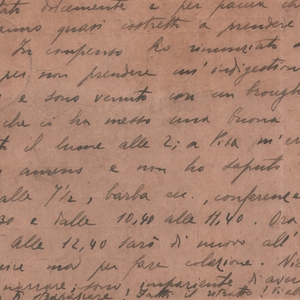 tato dolcemente e per paura che
anno quasi costretto a prendere
In compenso ho rinunziato a
per non prendere un'indigestion
e sono venuto con un trough
che ci ha messo una buona
il lume alle 2; a Pisa m'er
ameno e non ho saputo
alle 7½, barba ecc., conferenze
30 e dalle 10,40 alle 11,40. Ora
Alle 12,40 sarò di nuovo all'
ma per fare colazione.
sono impaziente d'aver